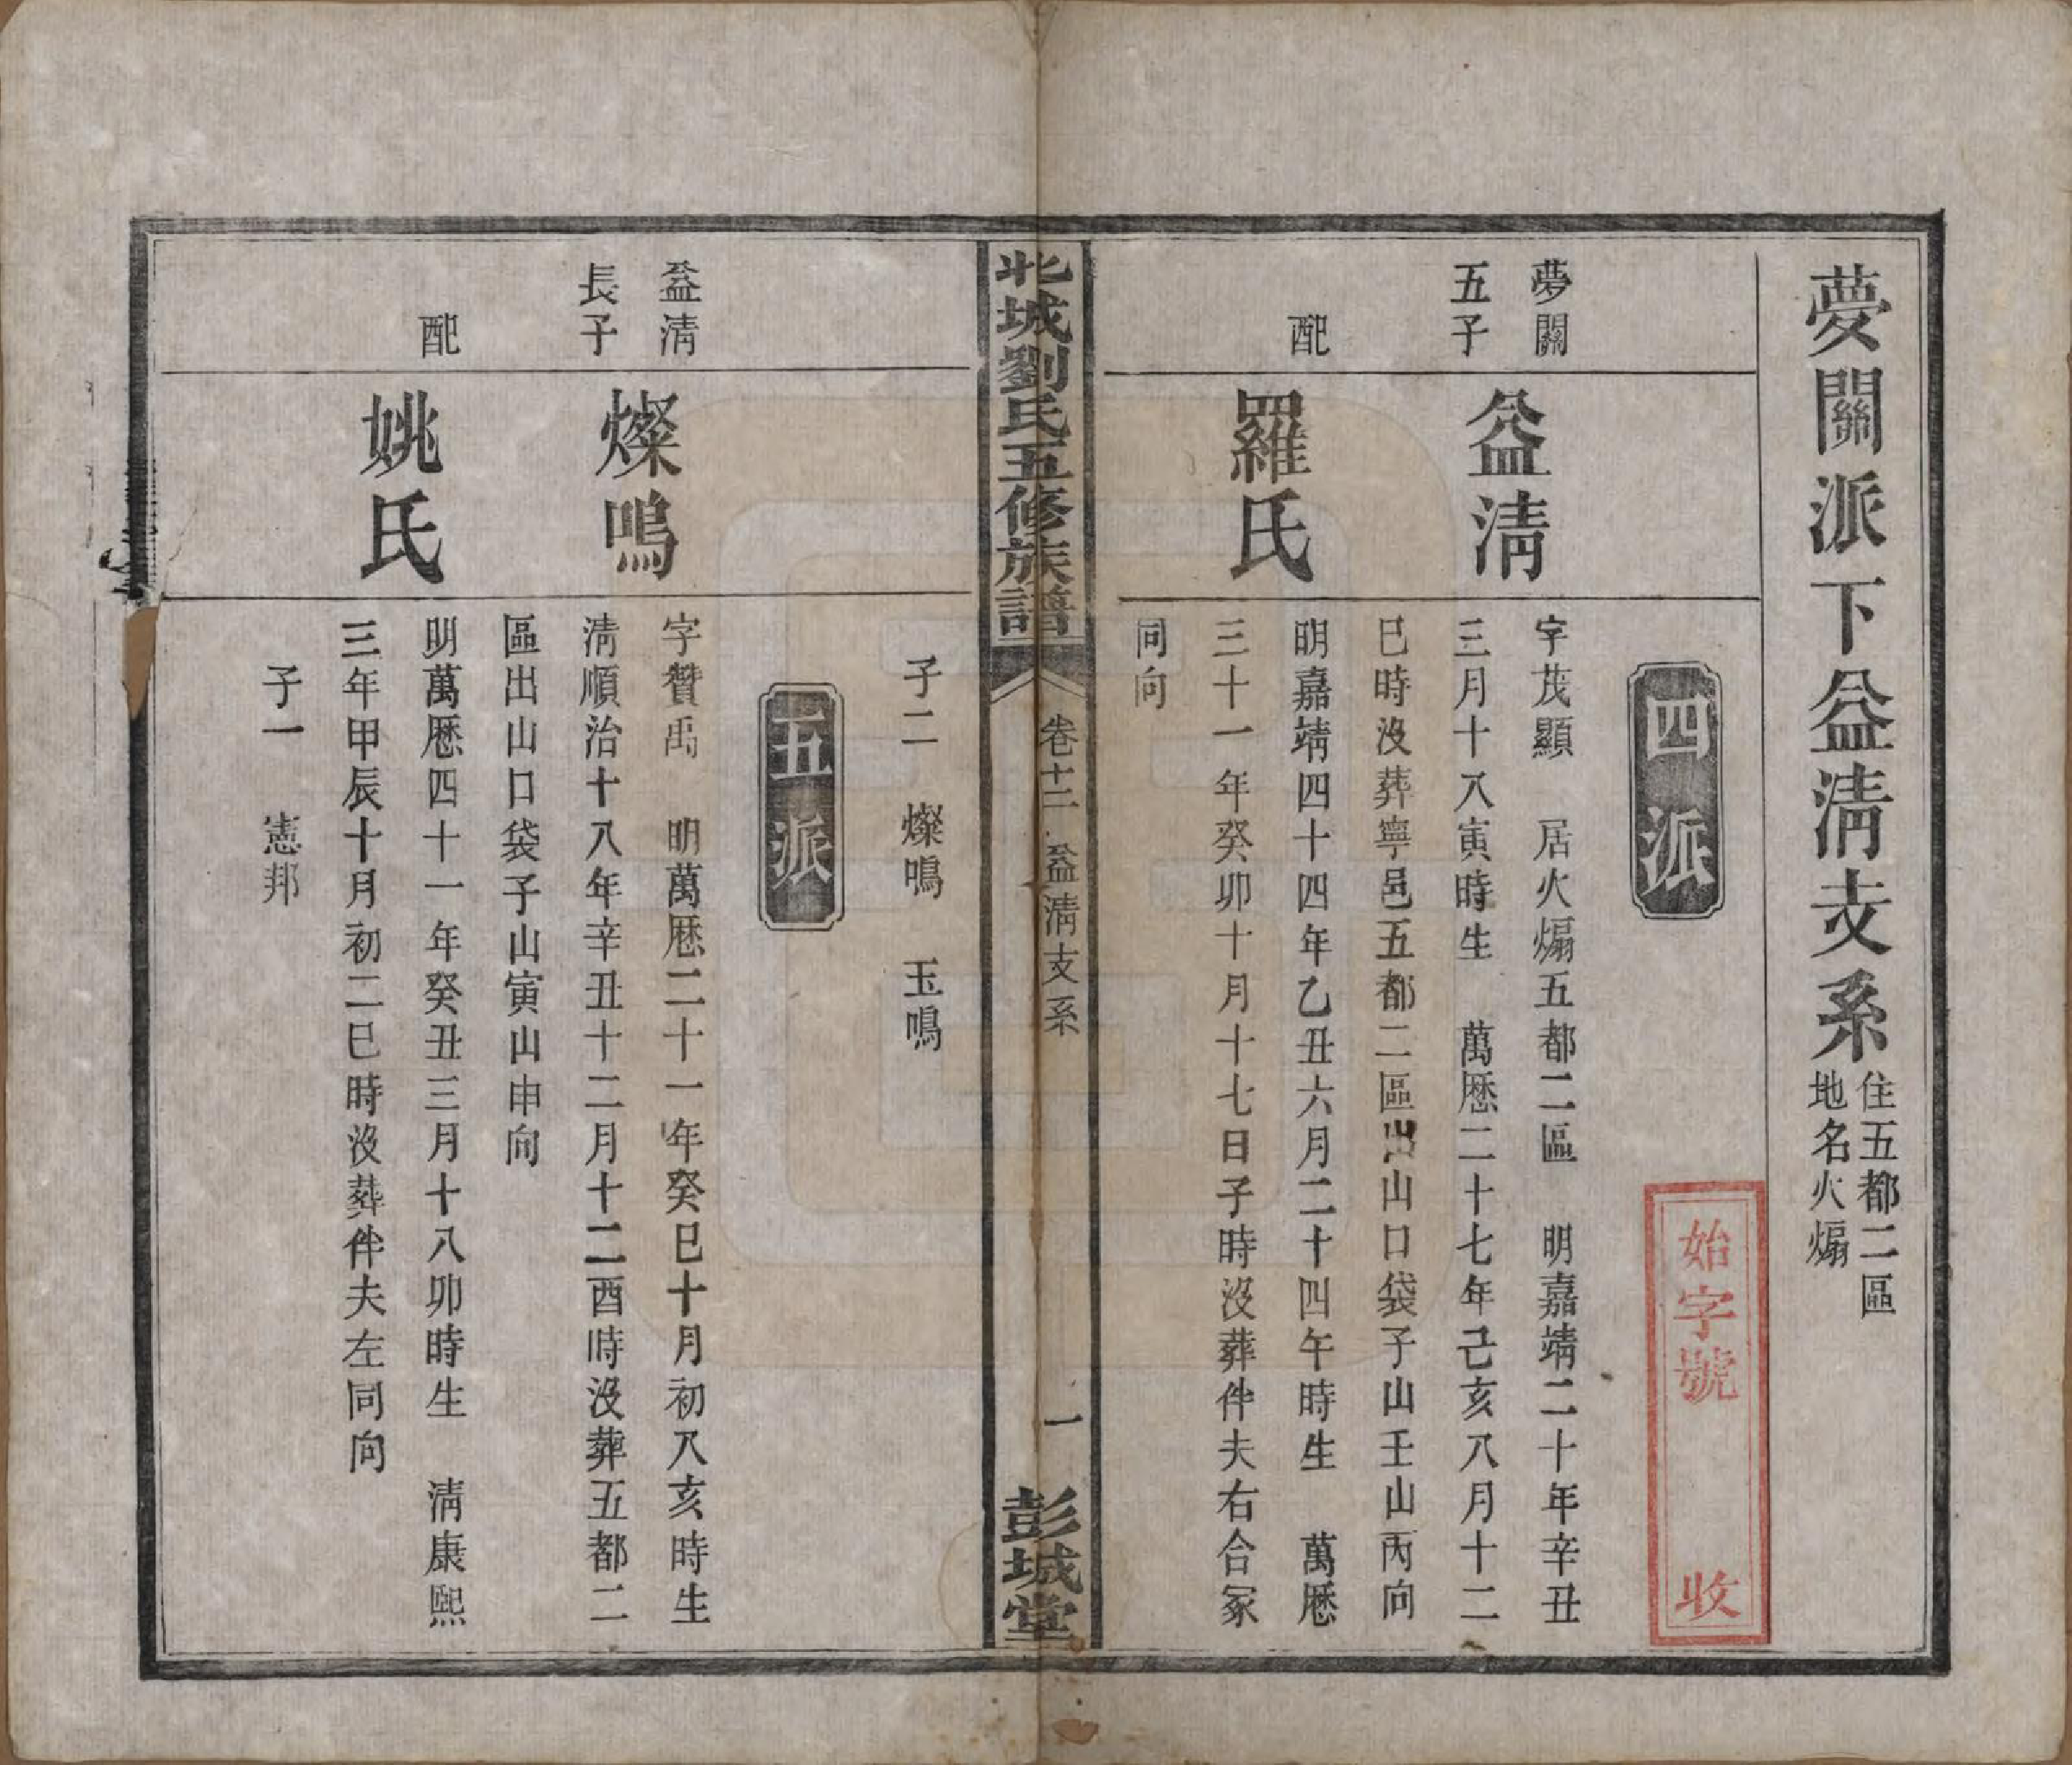 夢關派下益淸支系
住五都二區
地名火煽
始字號 收
四派
夢關
五子
益淸
字茂顯 居火煽五都二區 明嘉靖二十年辛丑
三月十八寅時生 萬厯二十七年己亥八月十二
巳時沒葬寧邑五都二區出山口袋子山壬山丙向
配
羅氏
明嘉靖四十四年乙丑六月二十四午時生 萬厯
三十一年癸卯十月十七日子時沒葬伴夫右合冢
同向
北城劉氏五修族譜
卷十二 益淸支系
一
彭城堂
子二 燦鳴 玉鳴
五派
益淸
長子
燦鳴
字贊禹 明萬厯二十一年癸巳十月初八亥時生
淸順治十八年辛丑十二月十二酉時沒葬五都二
區出山口袋子山寅山申向
配
姚氏
明萬厯四十一年癸丑三月十八卯時生 淸康熙
三年甲辰十月初二巳時沒葬伴夫左同向
子一 憲邦